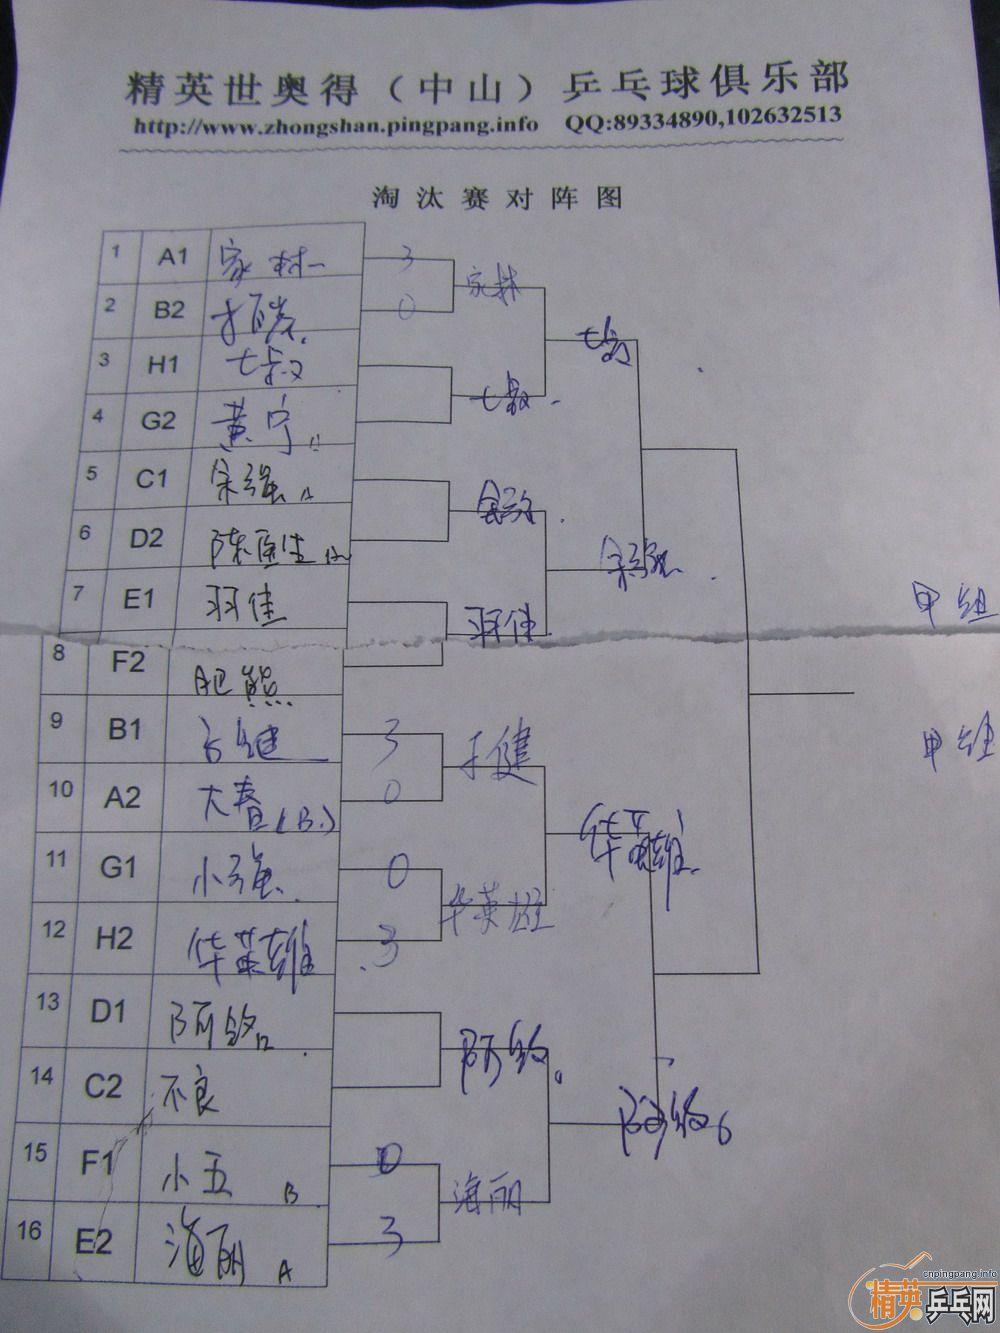 精英世奥得（中山）乒乓球俱乐部
http://www.zhongshan.pingpang.info QQ:89334890,102632513
淘汰赛对阵图
1 A1 家林 3
家林
2 B2 0
七叔
3 H1 七叔
七叔
4 G2 黄宁
5 C1 余强 A
余强
6 D2 陈
余强
7 E1 羽佳
羽佳
甲组
8 F2 肥熊
9 B1 3
甲组
10 A2 大春(B.) 0
华英雄
11 G1 小强 0
华英雄
12 H2 华英雄 3
13 D1 阿
阿
14 C2 不良
阿
15 F1 小五 B 0
海丽
16 E2 海丽 A 3
cnpingpang.info
精英乒乓网